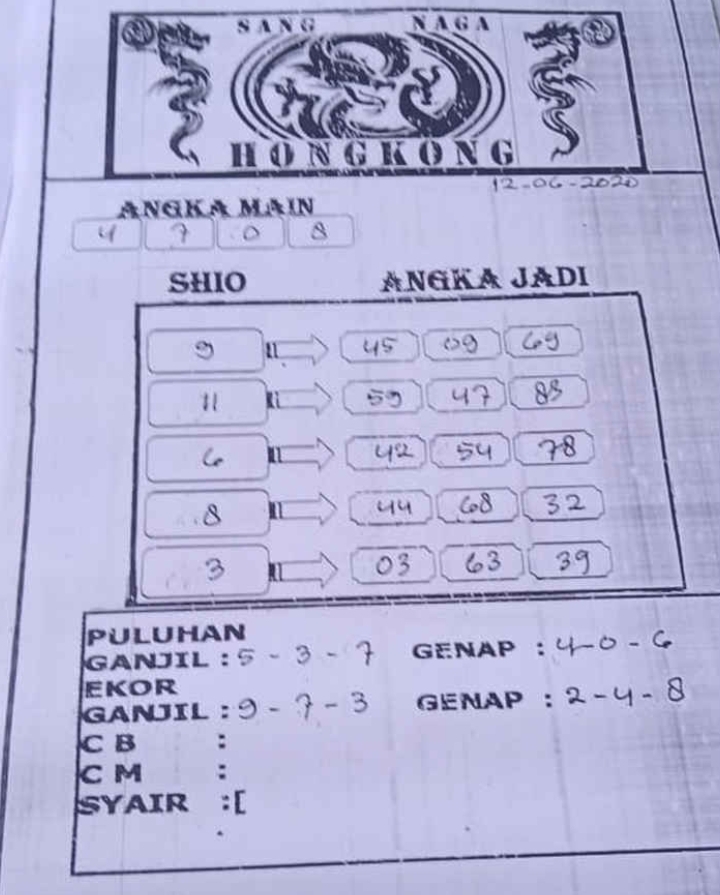 SANG NAGA
HONGKONG
12-06-2020
ANGKA MAIN
4 7 0 8
SHIO ANGKA JADI
9 45 09 69
11 59 47 83
6 42 54 78
8 44 68 32
3 03 63 39
PULUHAN
GANJIL : 5 - 3 - 7 GENAP : 4-0-6
EKOR
GANJIL : 9 - 7 - 3 GENAP : 2-4-8
C B :
C M :
SYAIR :[